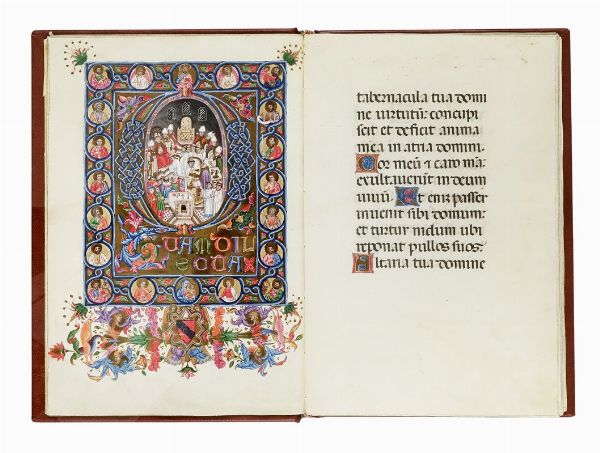 QUAM DIL
ECTA
tabernacula tua domi
ne uirtutū: concupi
scit et deficit anima
mea in atria domini.
Cor meū & caro mā
exultauerūt in deum
uiuū. Et enī passer
inuenit sibi domum:
et turtur nidum ubi
reponat pullos suos.
Altaria tua domine